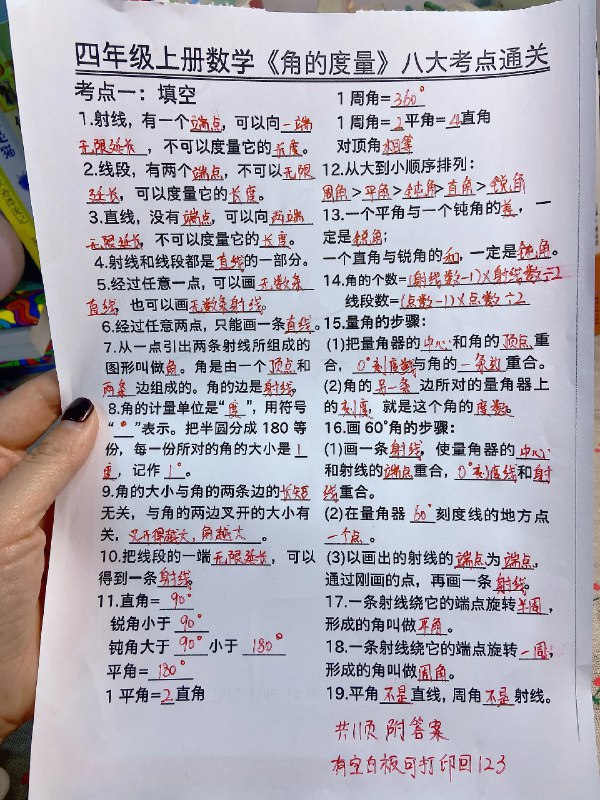 四年级上册数学《角的度量》八大考点通关
考点一：填空
1.射线，有一个端点，可以向一端
无限延长，不可以度量它的长度。
2.线段，有两个端点，不可以无限
延长，可以度量它的长度。
3.直线，没有端点，可以向两端
无限延长，不可以度量它的长度。
4.射线和线段都是直线的一部分。
5.经过任意一点，可以画无数条
直线，也可以画无数条射线。
6.经过任意两点，只能画一条直线。
7.从一点引出两条射线所组成的
图形叫做角。角是由一个顶点和
两条边组成的。角的边是射线。
8.角的计量单位是“度”，用符号
“°”表示。把半圆分成180等
份，每一份所对的角的大小是1
度，记作1°。
9.角的大小与角的两条边的长短
无关，与角的两边叉开的大小有
关，叉开得越大，角越大。
10.把线段的一端无限延长，可以
得到一条射线。
11.直角=90°
锐角小于90°
钝角大于90°小于180°
平角=180°
1平角=2直角
1周角=360°
1周角=2平角=4直角
对顶角相等
12.从大到小顺序排列：
周角>平角>钝角>直角>锐角
13.一个平角与一个钝角的差，一
定是锐角；
一个直角与锐角的和，一定是钝角。
14.角的个数=(射线数-1)×射线数÷2
线段数=(点数-1)×点数÷2
15.量角器的步骤：
(1)把量角器的中心和角的顶点重
合，0°刻度线与角的一条边重合。
(2)角的另一条边所对的量角器上
的刻度，就是这个角的度数。
16.画60°角的步骤：
(1)画一条射线，使量角器的中心
和射线的端点重合，0°刻度线和射
线重合。
(2)在量角器60°刻度线的地方点
一个点。
(3)以画出的射线的端点为端点，
通过刚画的点，再画一条射线。
17.一条射线绕它的端点旋转半周，
形成的角叫做平角。
18.一条射线绕它的端点旋转一周，
形成的角叫做周角。
19.平角不是直线，周角不是射线。
共11页 附答案
有空白板可打印回123